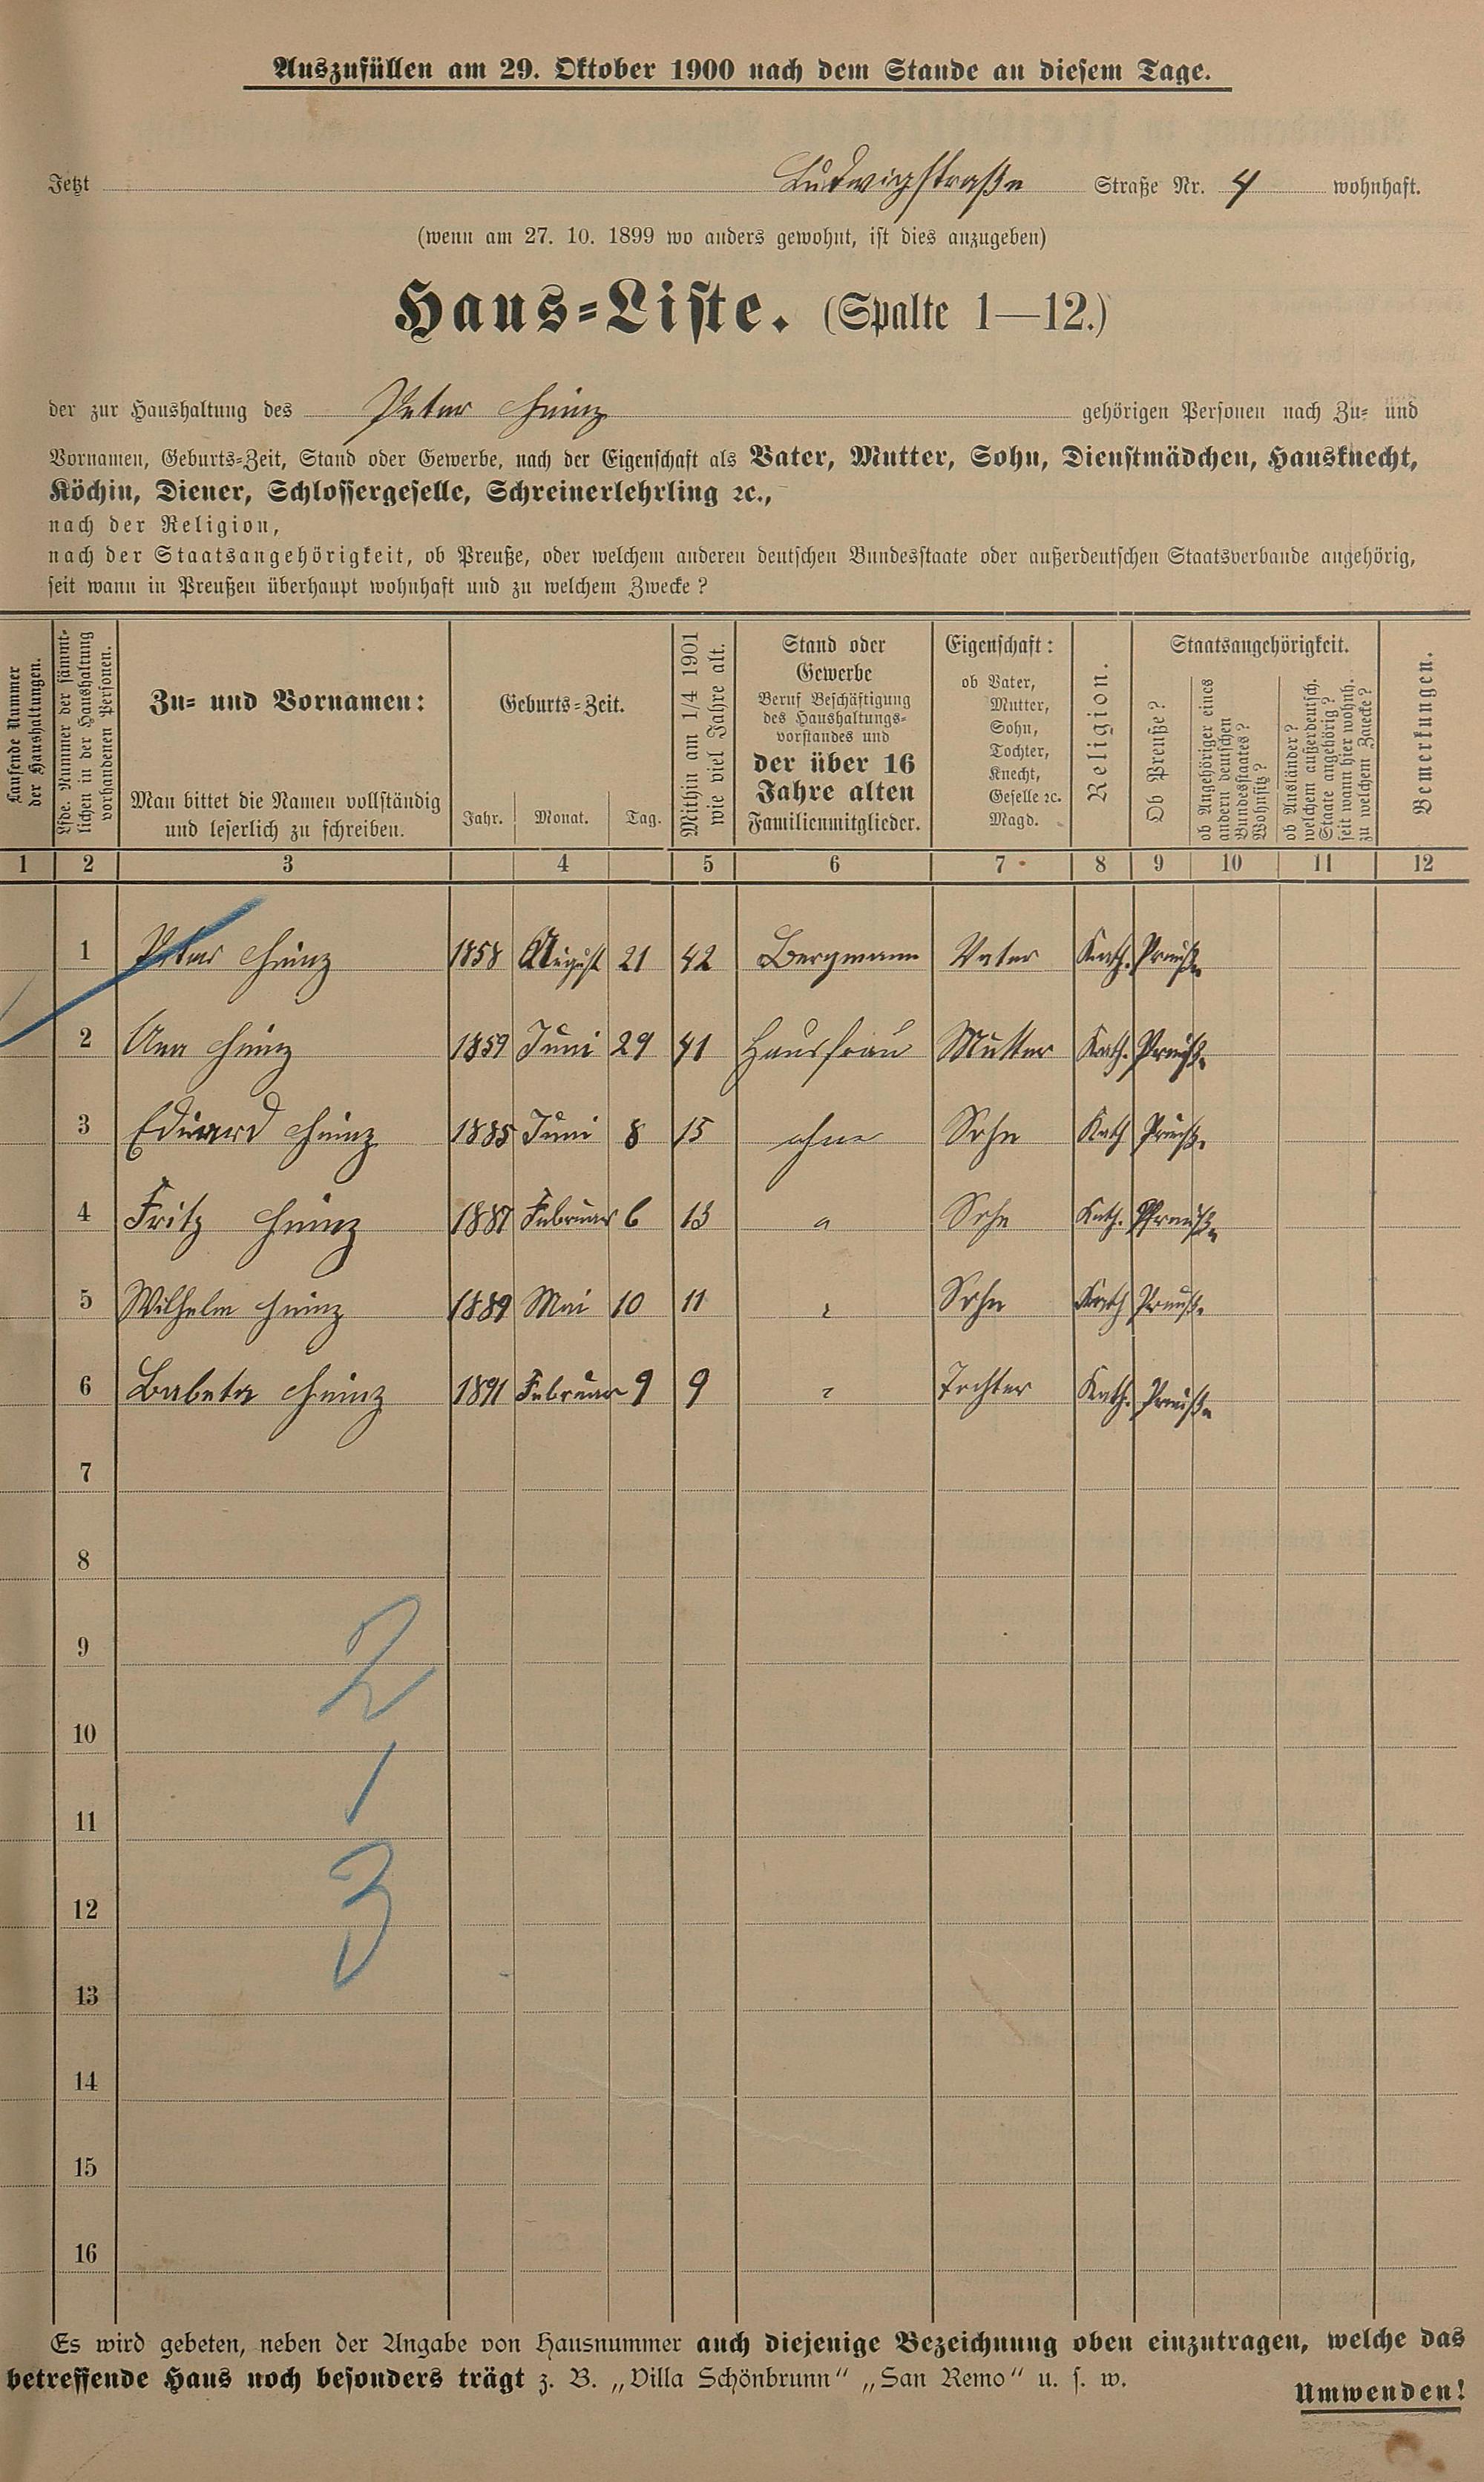 Auszufüllen am 29. Oktober 1900 nach dem Stande an diesem Tage.
Jetzt Ludwigstraße Straße Nr. 4 wohnhaft.
(wenn am 27. 10. 1899 wo anders gewohnt, ist dies anzugeben)
Haus-Liste. (Spalte 1—12.)
der zur Haushaltung des Peter Heinz gehörigen Personen nach Zu- und
Vornamen, Geburts-Zeit, Stand oder Gewerbe, nach der Eigenschaft als Vater, Mutter, Sohn, Dienstmädchen, Hausknecht,
Köchin, Diener, Schlossergeselle, Schreinerlehrling ꝛc.,
nach der Religion,
nach der Staatsangehörigkeit, ob Preuße, oder welchem anderen deutschen Bundesstaate oder außerdeutschen Staatsverbande angehörig,
seit wann in Preußen überhaupt wohnhaft und zu welchem Zwecke?
Laufende Nummer
der Haushaltungen.
Lfde. Nummer der sämmt-
lichen in der Haushaltung
vorhandenen Personen.
Zu- und Vornamen:
Man bittet die Namen vollständig
und leserlich zu schreiben.
Geburts-Zeit.
Jahr. Monat. Tag.
Mithin am 1/4 1901
wie viel Jahre alt.
Stand oder
Gewerbe
Beruf Beschäftigung
des Haushaltungs-
vorstandes und
der über 16
Jahre alten
Familienmitglieder.
Eigenschaft:
ob Vater,
Mutter,
Sohn,
Tochter,
Knecht,
Geselle ꝛc.
Magd.
Religion.
Staatsangehörigkeit.
Ob Preuße?
ob Angehöriger eines
andern deutschen
Bundesstaates?
Wohnsitz?
ob Ausländer?
welchem außerdeutsch.
Staate angehörig?
seit wann hier wohnh.
zu welchem Zwecke?
Bemerkungen.
1 2 3 4 5 6 7 8 9 10 11 12
1 Peter Heinz 1858 August 21 42 Bergmann Vater Kath. Preuße
2 Ann Heinz 1859 Juni 29 41 Hausfrau Mutter Kath. Preuße
3 Eduard Heinz 1885 Juni 8 15 ohne Sohn Kath Preuße
4 Fritz Heinz 1887 Februar 6 13 Sohn Kath. Preuße
5 Wilhelm Heinz 1889 Mai 10 11 Sohn Kath Preuße
6 Babeta Heinz 1891 Februar 9 9 Tochter Kath. Preuße
7
8
9
2
10
1
11
12
3
13
14
15
16
Es wird gebeten, neben der Angabe von Hausnummer auch diejenige Bezeichnung oben einzutragen, welche das
betreffende Haus noch besonders trägt z. B. „Villa Schönbrunn“ „San Remo“ u. s. w.
Umwenden!